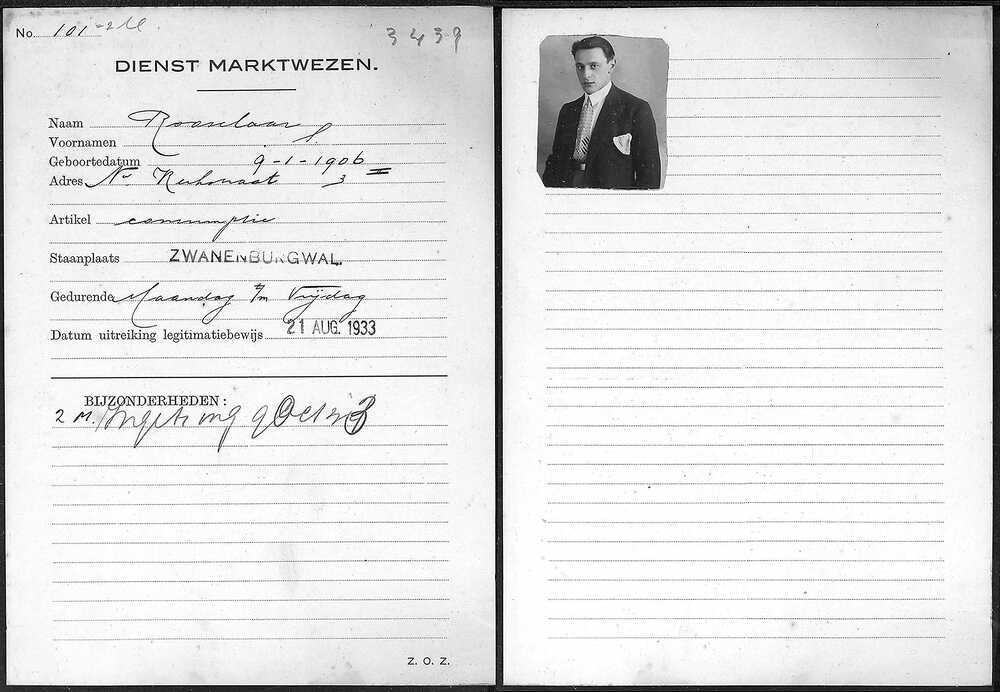 No. 101-2M 3439
DIENST MARKTWEZEN.
Naam Rooselaar
Voornamen S.
Geboortedatum 9-1-1906
Adres Nw Kerkstraat 3 II
Artikel consumptie
Staanplaats ZWANENBURGWAL.
Gedurende Maandag t/m Vrijdag
Datum uitreiking legitimatiebewijs 21 AUG. 1933
BIJZONDERHEDEN:
2 M.
Z. O. Z.